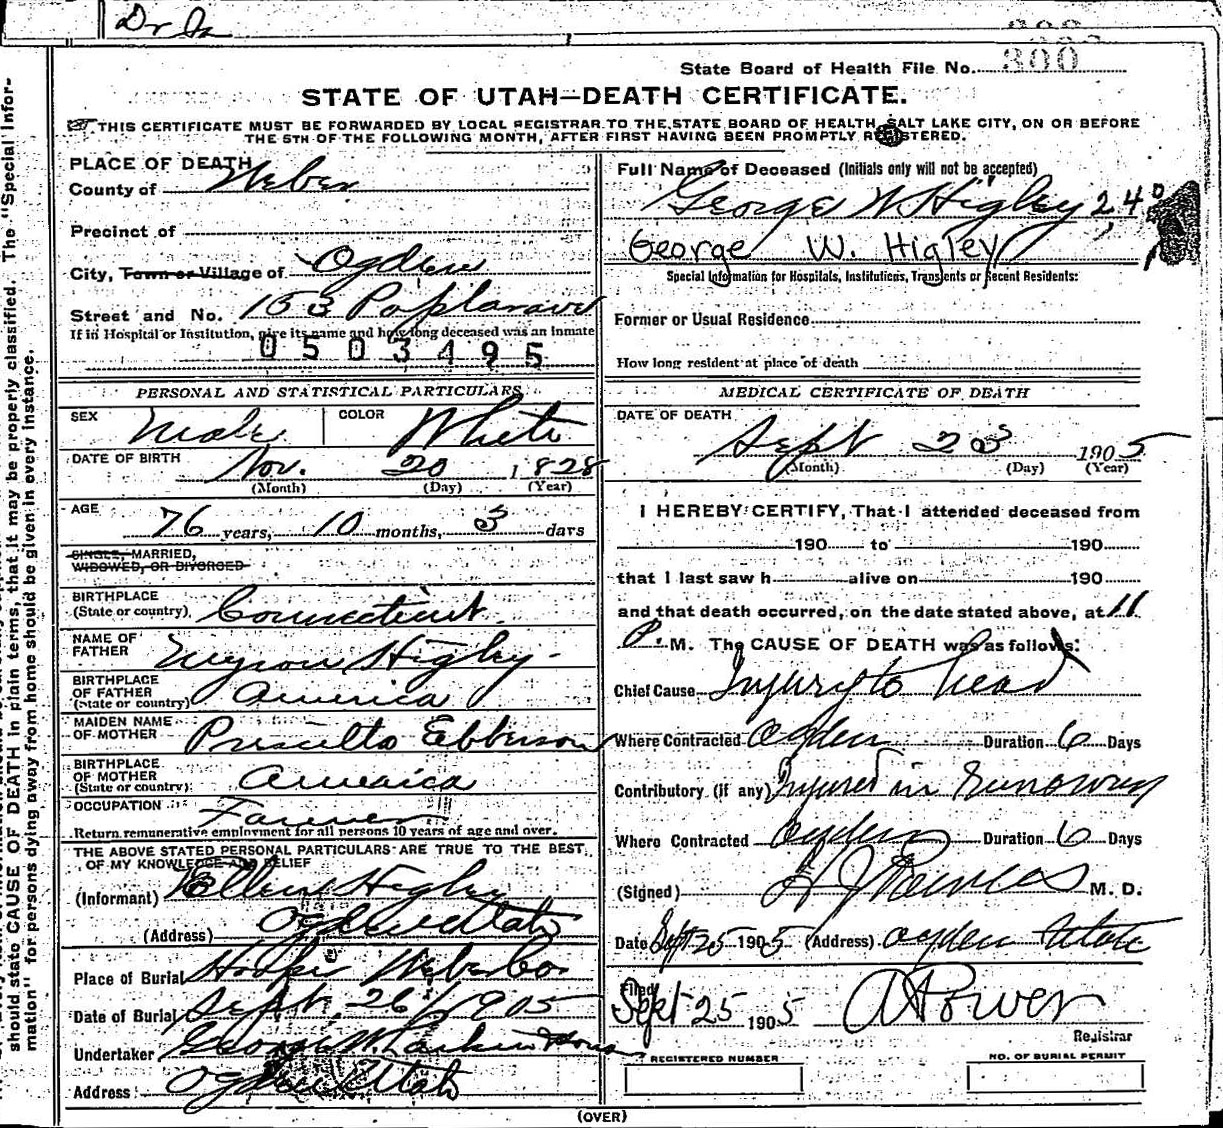 Dr
300
State Board of Health File No.
STATE OF UTAH—DEATH CERTIFICATE.
THIS CERTIFICATE MUST BE FORWARDED BY LOCAL REGISTRAR TO THE STATE BOARD OF HEALTH, SALT LAKE CITY, ON OR BEFORE
THE 5TH OF THE FOLLOWING MONTH, AFTER FIRST HAVING BEEN PROMPTLY REGISTERED.
should state CAUSE OF DEATH in plain terms, that it may be properly classified. The "Special Infor-
mation" for persons dying away from home should be given in every instance.
PLACE OF DEATH
County of Weber
Precinct of
City, Town or Village of Ogden
Street and No. 153 Poplar ave
If in Hospital or Institution, give its name and how long deceased was an inmate
0503495
PERSONAL AND STATISTICAL PARTICULARS
SEX Male COLOR White
DATE OF BIRTH Nov. 20 1828
(Month) (Day) (Year)
AGE 76 years, 10 months, 3 days
SINGLE, MARRIED,
WIDOWED, OR DIVORCED
BIRTHPLACE
(State or country) Connecticut
NAME OF
FATHER Myron Higley
BIRTHPLACE
OF FATHER
(State or country) America
MAIDEN NAME
OF MOTHER Priscilla Ebberson
BIRTHPLACE
OF MOTHER
(State or country) America
OCCUPATION Farmer
Return remunerative employment for all persons 10 years of age and over.
THE ABOVE STATED PERSONAL PARTICULARS ARE TRUE TO THE BEST
OF MY KNOWLEDGE AND BELIEF
(Informant) Higley
(Address) Ogden Utah
Place of Burial Hooper Weber Co
Date of Burial Sept. 26/1905
Undertaker George W Larkin & Sons
Address Ogden Utah
Full Name of Deceased (Initials only will not be accepted)
George W Higley 240
George W. Higley
Special Information for Hospitals, Institutions, Transients or Recent Residents:
Former or Usual Residence
How long resident at place of death
MEDICAL CERTIFICATE OF DEATH
DATE OF DEATH
Sept 23 1905
(Month) (Day) (Year)
I HEREBY CERTIFY, That I attended deceased from
190 to 190
that I last saw h alive on 190
and that death occurred, on the date stated above, at 11
P. M. The CAUSE OF DEATH was as follows:
Chief Cause Injury to head
Where Contracted Ogden Duration 6 Days
Contributory (if any) Injured in Runaway
Where Contracted Ogden Duration 6 Days
(Signed) M. D.
Date Sept 25 1905 (Address) Ogden Utah
Filed
Sept 25 1905 Power
Registrar
REGISTERED NUMBER NO. OF BURIAL PERMIT
(OVER)